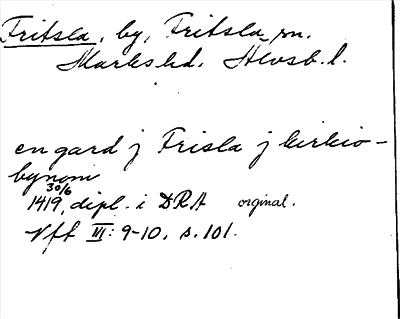 Fritsla, by, Fritsla sn.
Marks hd. Älvsb. l.
en gard j Frisla j kirkio-
bynom
30/6
1419, dipl. i DRA orginal.
Vff III: 9-10, s. 101.